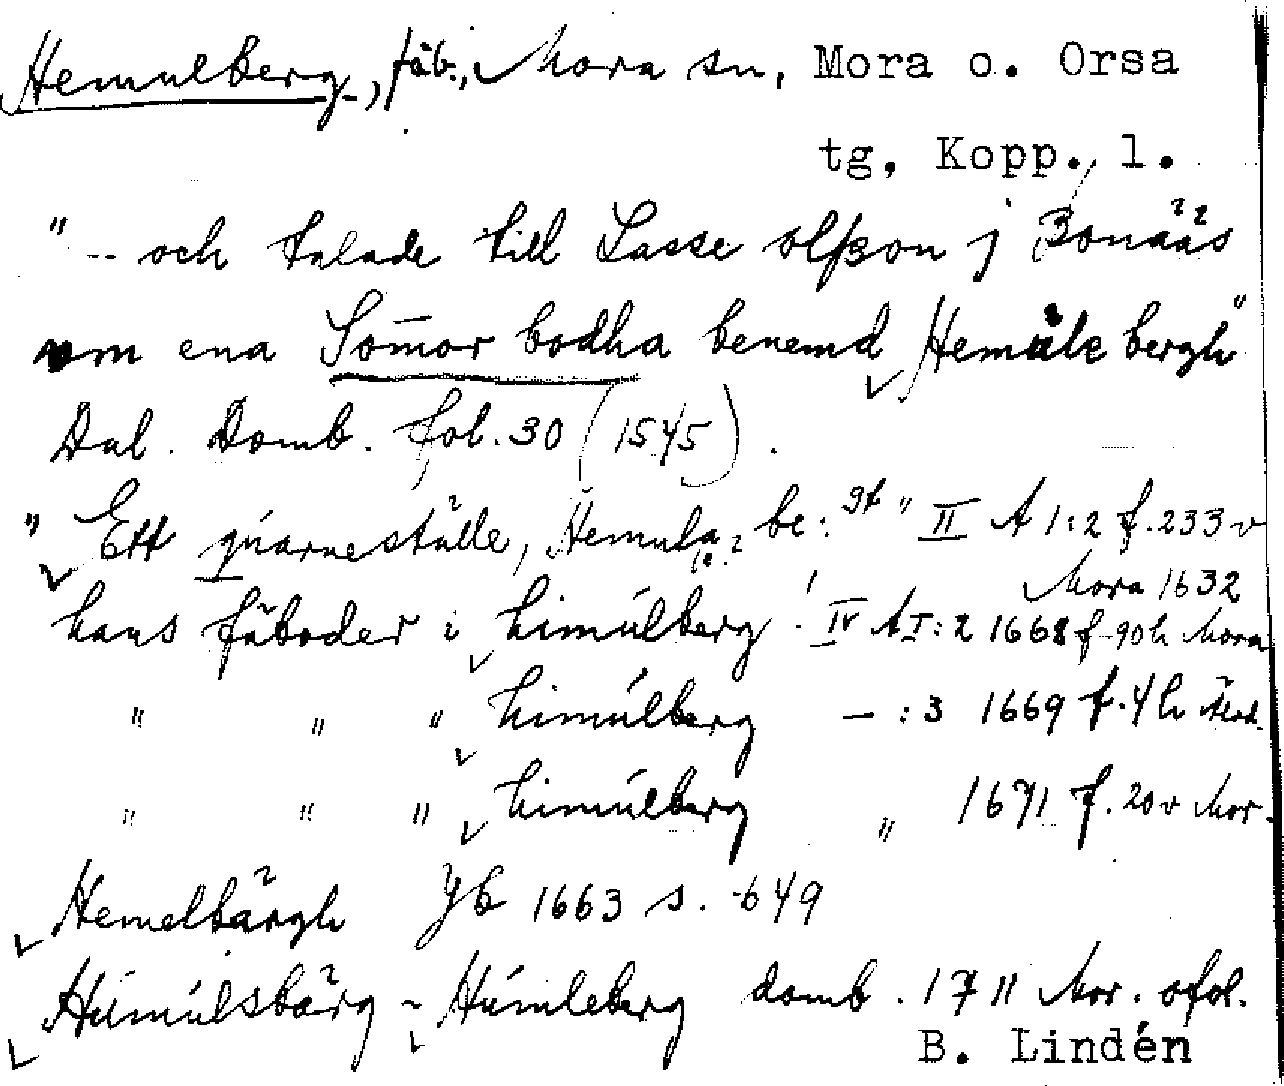 Hemulberg, fäb., Mora sn, Mora o. Orsa
tg, Kopp. l.
" -- och talade till Lasse olßon j Bonääs
om ena Som̄or bodha benemd Hemúle bergh"
Dal. Domb. fol. 30 (1545).
" Ett quarneställe, Hemula be: gh " II A 1:2 f. 233 v
Mora 1632
hans fäboder i himúlberg ! IV A I:2 1668 f. 90 h Mora
" " " himúlberg — :3 1669 f. 4 h
" " " himúlberg " 1671 f. 20 v Mor.
Hemelbärgh Jb 1663 s. 649
Húmúlsbärg ~ Húmleberg domb. 1711 Mor. ofol.
B. Lindén